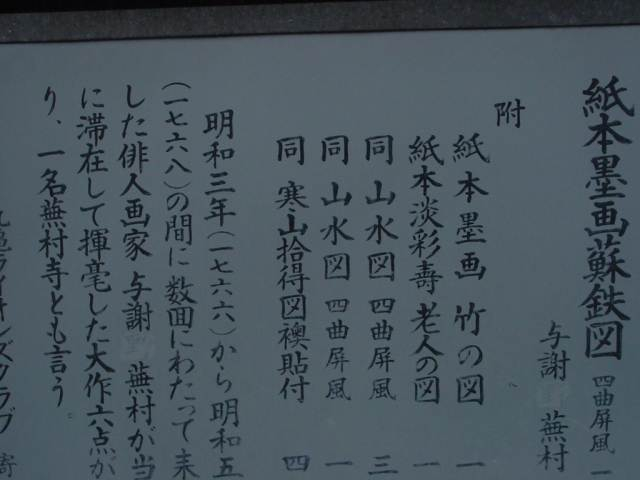 紙本墨画蘇鉄図 四曲屏風 一
与謝 蕪村
附
紙本墨画 竹の図 一
紙本淡彩寿老人の図 一
同 山水図 四曲屏風 三
同 山水図 四曲屏風 一
同 寒山拾得図襖貼付 四
明和三年(一七六六)から明和五
(一七六八)の間に数回にわたって来
した俳人画家与謝 蕪村が当
に滞在して揮毫した大作六点が
り、一名蕪村寺とも言う。
亀ライオンズクラブ 寄